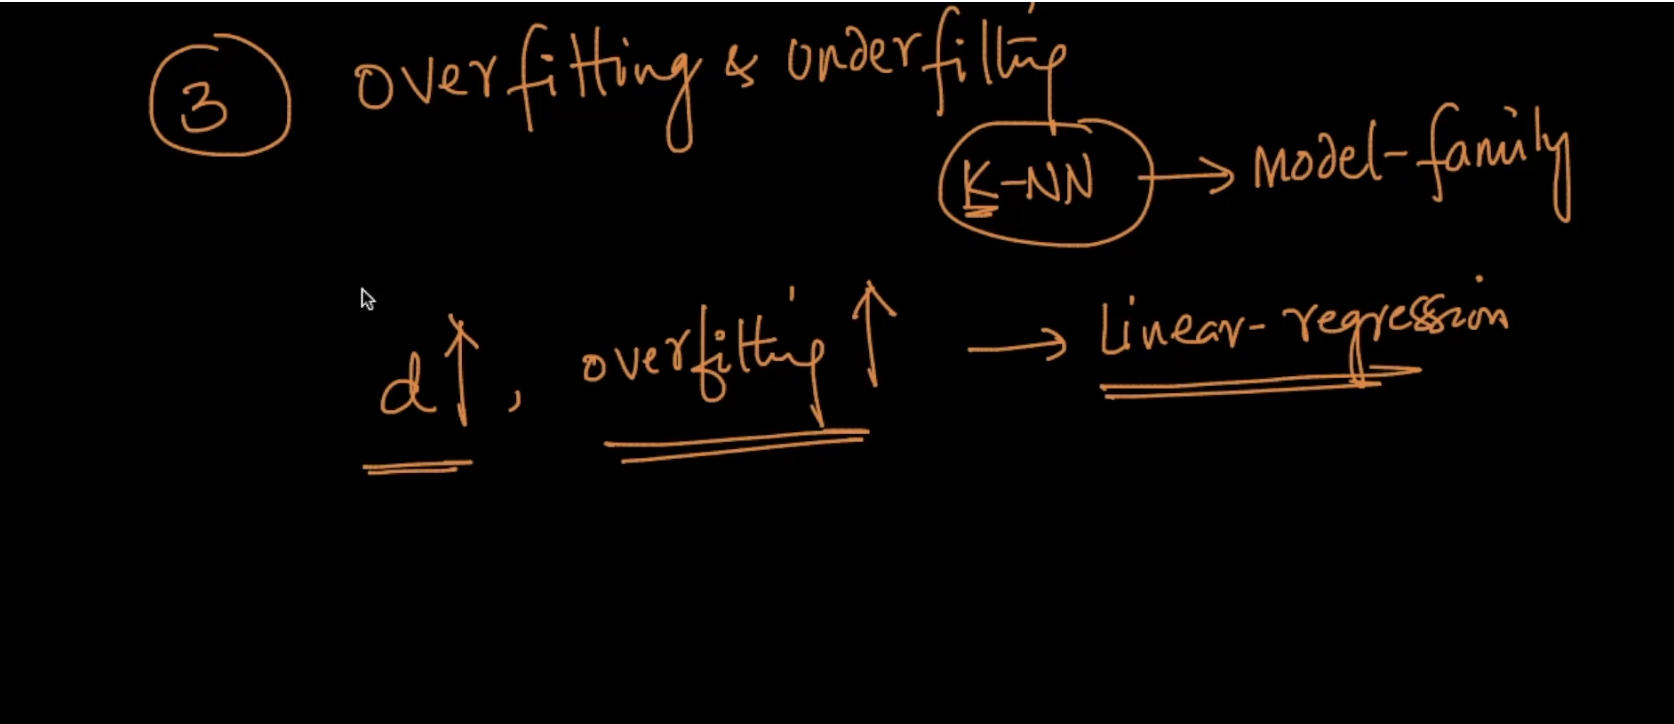 3 overfitting & underfitting
K-NN → Model-family
d↑, overfitting ↑ → Linear-regression